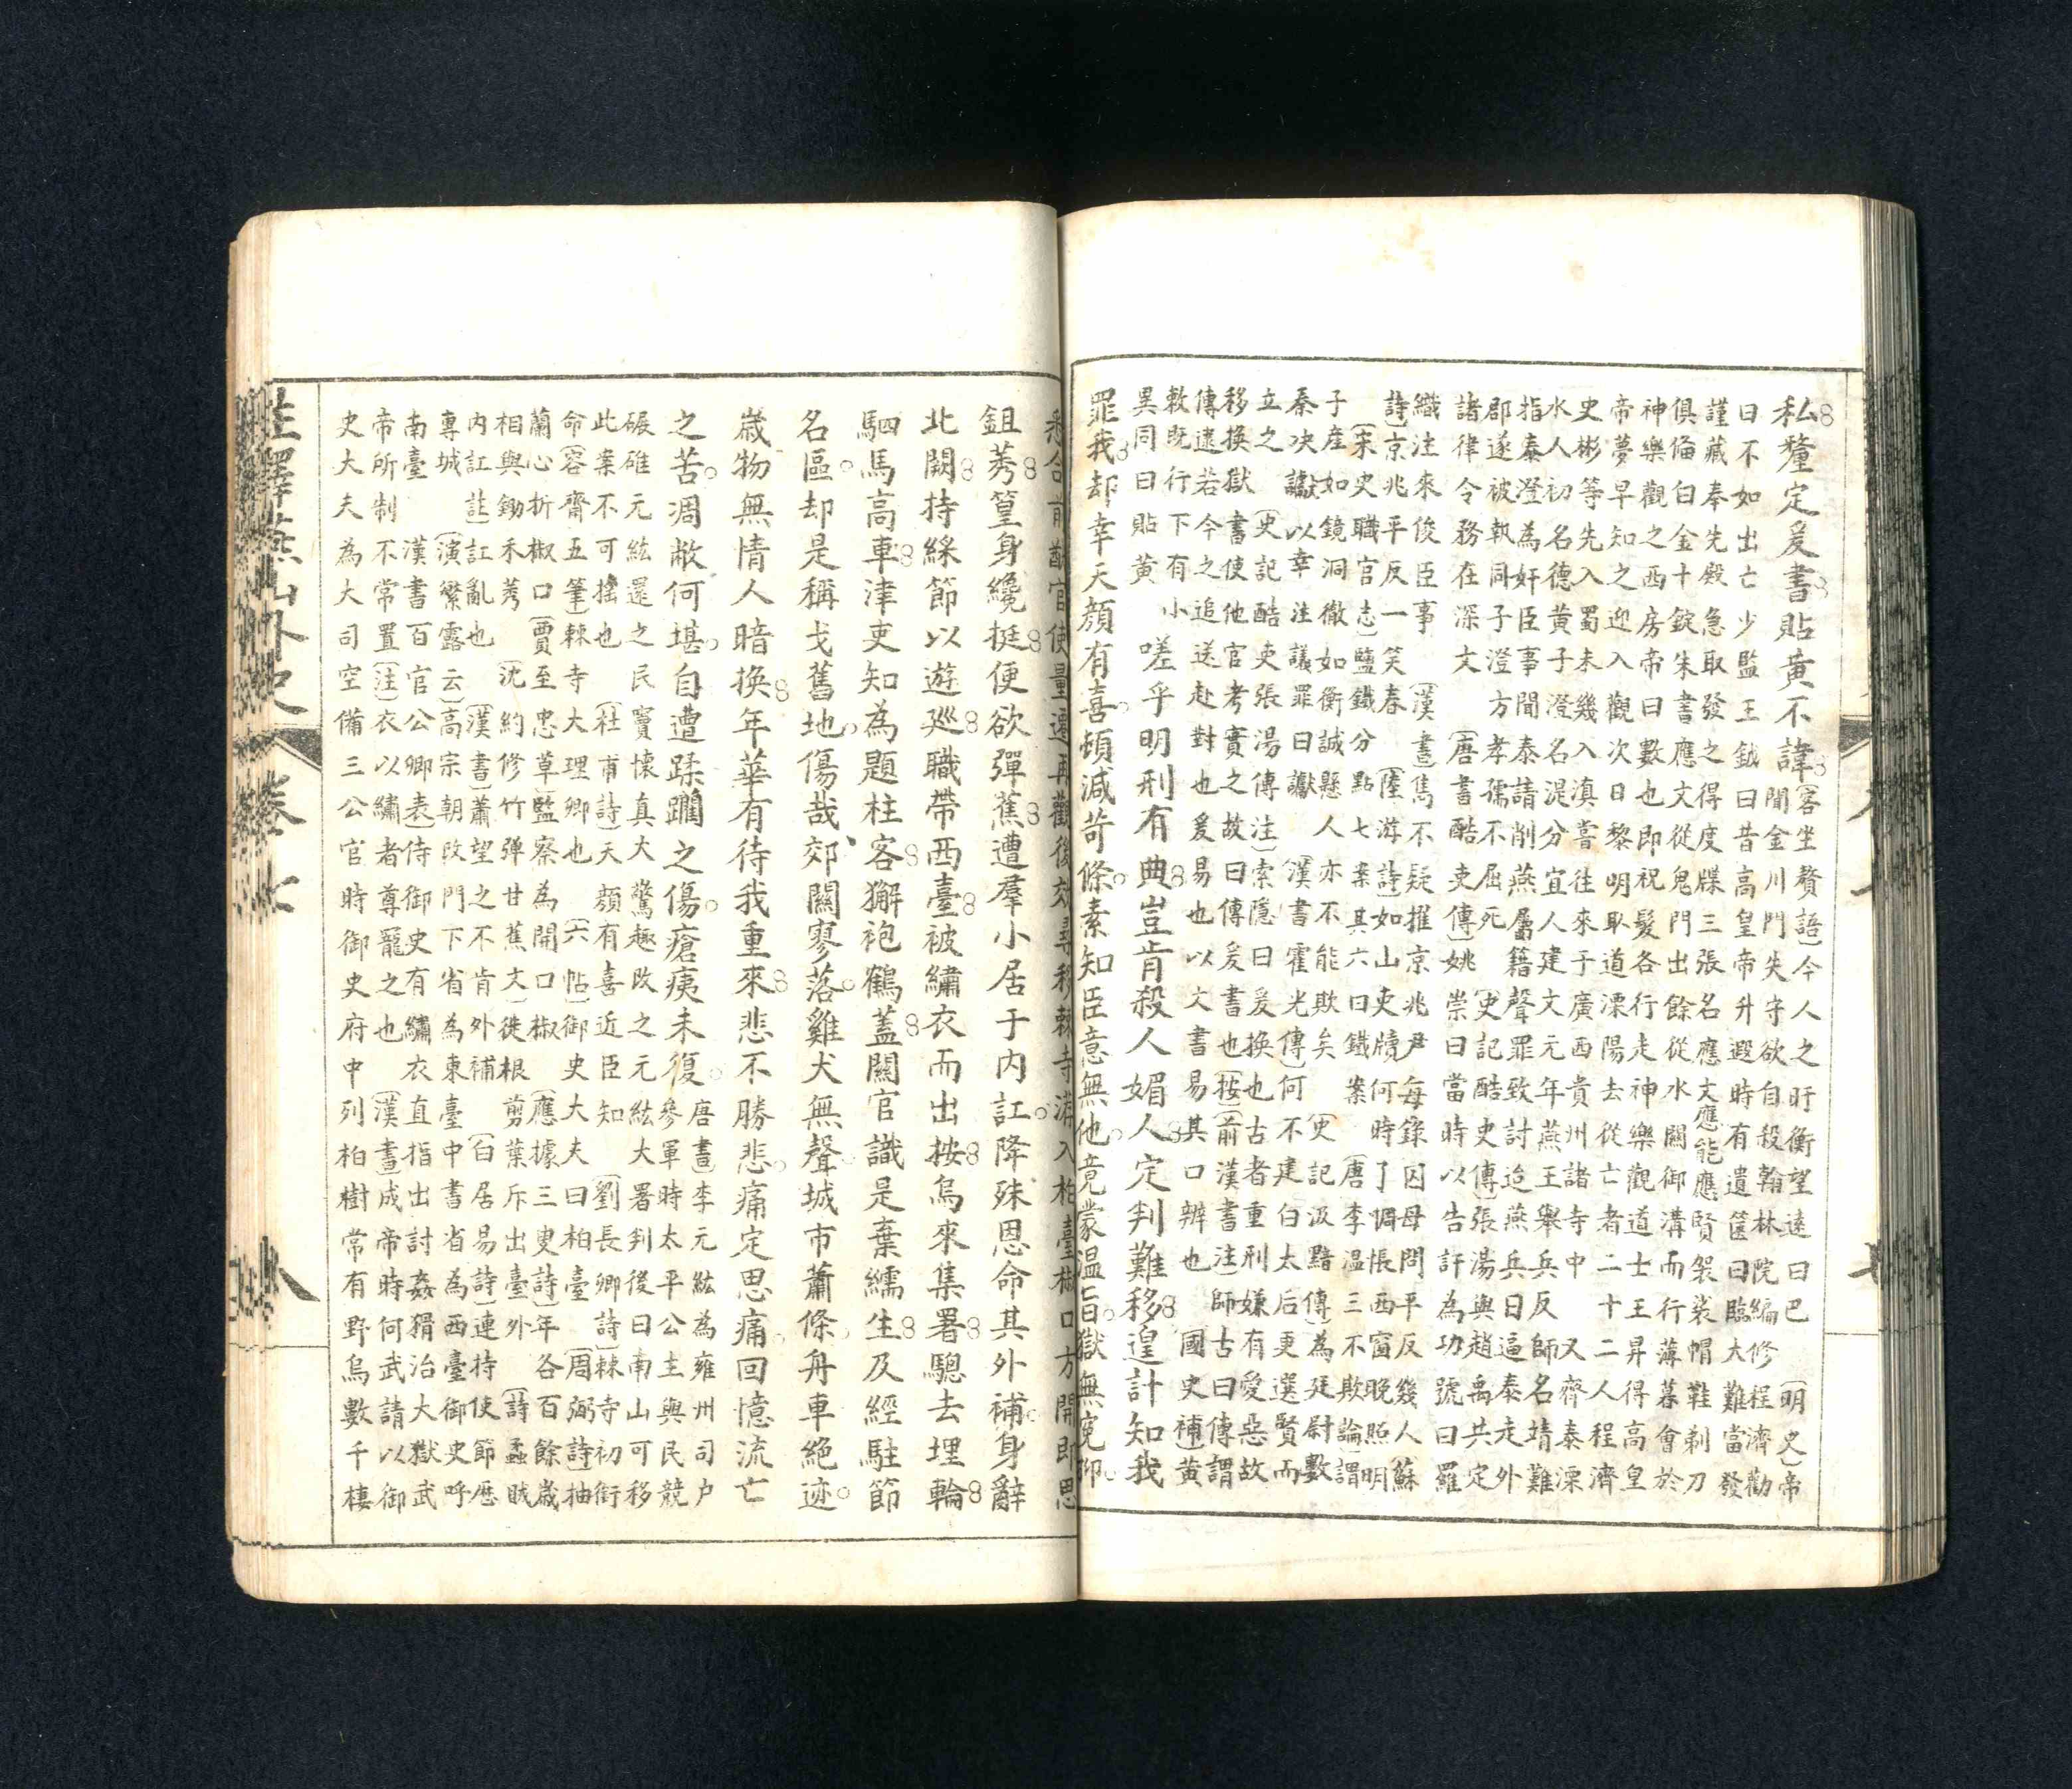 私釐定爰書貼黃不諱
客坐贅語今人之盱衡望遠曰巴
明史帝
曰不如出亡少監王鉞曰昔高皇帝升遐時有遺篋曰臨大難當發
謹藏奉先殿急取發之得度牒三張名應文應能應賢袈裟帽鞋剃刀
俱備白金十錠朱書應文從鬼門出餘從水關御溝而行薄暮會於
神樂觀之西房帝曰數也即祝髮各行走神樂觀道士王昇得高皇
帝夢早知之迎入觀次日黎明取道溧陽去從亡者二十二人程濟
史彬等先入蜀未幾入滇嘗往來于廣西貴州諸寺中
水人初名德黃子澄名湜分宜人建文元年燕王舉兵反師名靖難
指秦澄為奸臣事聞泰請削燕屬籍聲罪致討迨燕兵日逼泰走外
郡遂被執同子澄方孝孺不屈死
諸律令務在深文
唐書酷吏傳姚崇曰當時以告訐為功號曰羅
織注來俊臣事
漢書雋不疑擢京兆尹每錄囚母問平反幾人蘇
詩京兆平反一笑春
陸游詩如山吏牘何時了惆悵西窗晚照明
宋史職官志鹽鐵分點七案其六曰鐵案
唐李溫三不欺論謂
子產如鏡洞徹如衡誠懸人亦不能欺矣
史記汲黯傳為廷尉數
秦决讞以幸注議罪曰讞
漢書霍光傳何不建白太后更選賢而
立之
史記酷吏張湯傳注索隱曰爰換也古者重刑嫌有愛惡故
移換獄書使他官考實之故曰傳爰書也
按前漢書注師古曰傳謂
傳逮若今之追送赴對也爰易也以文書易其口辨也
國史補黃
敕既行下有小
異同曰貼黃
嗟乎明刑有典豈肯殺人媚人定判難移遑計知我
罪我却幸天顏有喜頓減苛條素知臣意無他竟蒙温旨獄無寃抑
鉏莠篁身纔挺便欲彈蕉遭羣小居于内訌降殊恩命其外補身辭
北闕持綵節以遊廵職帶西臺被繡衣而出按烏來集署驄去埋輪
駟馬高車津吏知為題柱客獬袍鶴蓋關官識是棄繻生及經駐節
名區却是稱戈舊地傷哉郊關寥落雞犬無聲城市蕭條舟車絕迹
歲物無情人暗換年華有待我重來悲不勝悲痛定思痛回憶流亡
之苦凋敝何堪自遭蹂躙之傷瘡痍未復
唐書李元紘為雍州司户
參軍時太平公主與民競
碾磑元紘還之民竇懷真大驚趣改之元紘大署判後曰南山可移
此案不可搖也
杜甫詩天顏有喜近臣知
劉長卿詩棘寺初銜
命
容齋五筆棘寺大理卿也
六帖御史大夫曰柏臺
周弼詩抽
蘭心折椒口
賈至忠草監察為開口椒
應據三叟詩年各百餘歲
相與鋤禾莠
沈約修竹彈甘蕉文徙根剪葉斥出臺外
詩蟊賊
内訌註訌亂也
漢書蕭望之不肯外補
白居易詩連持使節歷
專城
演繁露云高宗朝改門下省為東臺中書省為西臺御史呼
南臺
漢書百官公卿表侍御史有繡衣直指出討姦猾治大獄武
帝所制不常置
注衣以繡者尊寵之也
漢書成帝時何武請以御
史大夫為大司空備三公官時御史府中列柏樹常有野烏數千棲